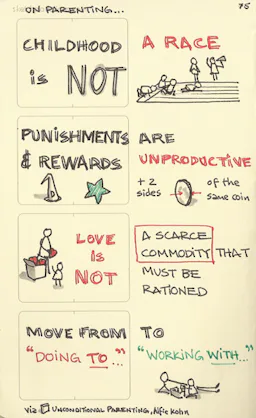 ON PARENTING...
75
CHILDHOOD
is NOT
A RACE
PUNISHMENTS
& REWARDS
ARE
UNPRODUCTIVE
+ 2
sides
of the
same coin
LOVE
IS
NOT
A SCARCE
COMMODITY THAT
MUST BE
RATIONED
MOVE FROM
"DOING TO..."
TO
"WORKING WITH..."
via UNCONDITIONAL PARENTING, Alfie Kohn